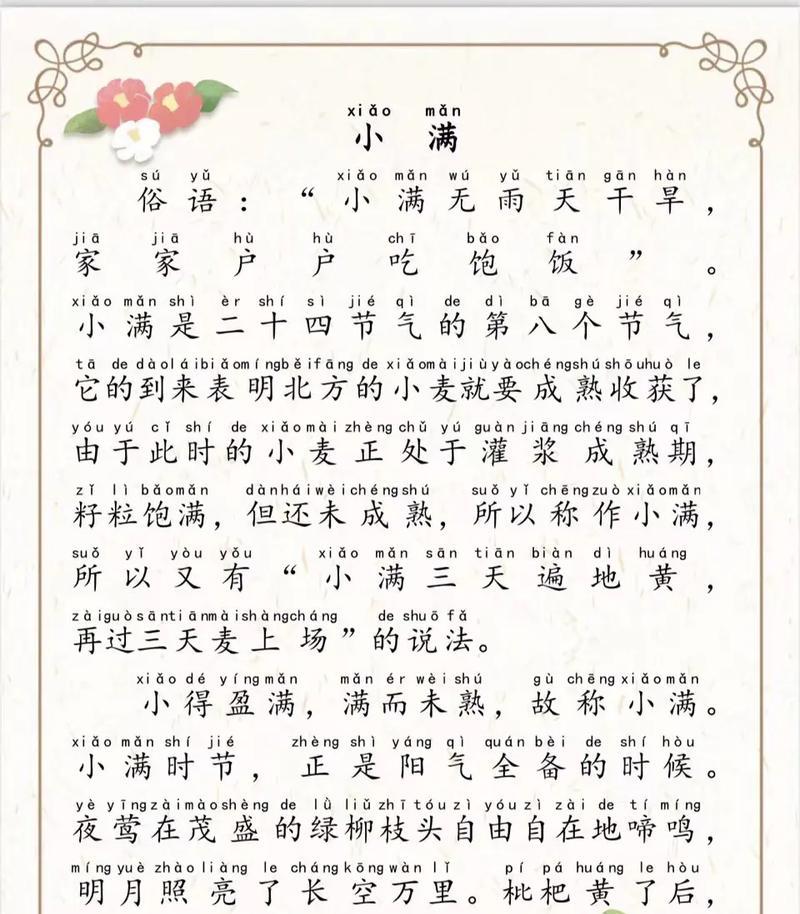 xiǎo mǎn
小 满
sú yǔ xiǎo mǎn wú yǔ tiān gān hàn
俗语：“小满无雨天干旱，
jiā jiā hù hù chī bǎo fàn
家家户户吃饱饭”。
xiǎo mǎn shì èr shí sì jié qì de dì bā gè jié qì
小满是二十四节气的第八个节气，
tā de dào lái biǎo míng běi fāng de xiǎo mài jiù yào chéng shú shōu huò le
它的到来表明北方的小麦就要成熟收获了，
yóu yú cǐ shí de xiǎo mài zhèng chǔ yú guàn jiāng chéng shú qī
由于此时的小麦正处于灌浆成熟期，
zǐ lì bǎo mǎn dàn hái wèi chéng shú suǒ yǐ chēng zuò xiǎo mǎn
籽粒饱满，但还未成熟，所以称作小满，
suǒ yǐ yòu yǒu xiǎo mǎn sān tiān biàn dì huáng
所以又有“小满三天遍地黄，
zài guò sān tiān mài shàng cháng de shuō fǎ
再过三天麦上场”的说法。
xiǎo dé yíng mǎn mǎn ér wèi shú gù chēng xiǎo mǎn
小得盈满，满而未熟，故称小满。
xiǎo mǎn shí jié zhèng shì yáng qì quán bèi de shí hòu
小满时节，正是阳气全备的时候。
yè yīng zài mào shèng de lǜ liǔ zhī tóu zì yóu zì zài de tí míng
夜莺在茂盛的绿柳枝头自由自在地啼鸣，
míng yuè zhào liàng le cháng kōng wàn lǐ pí pá huáng le hòu
明月照亮了长空万里。枇杷黄了后，